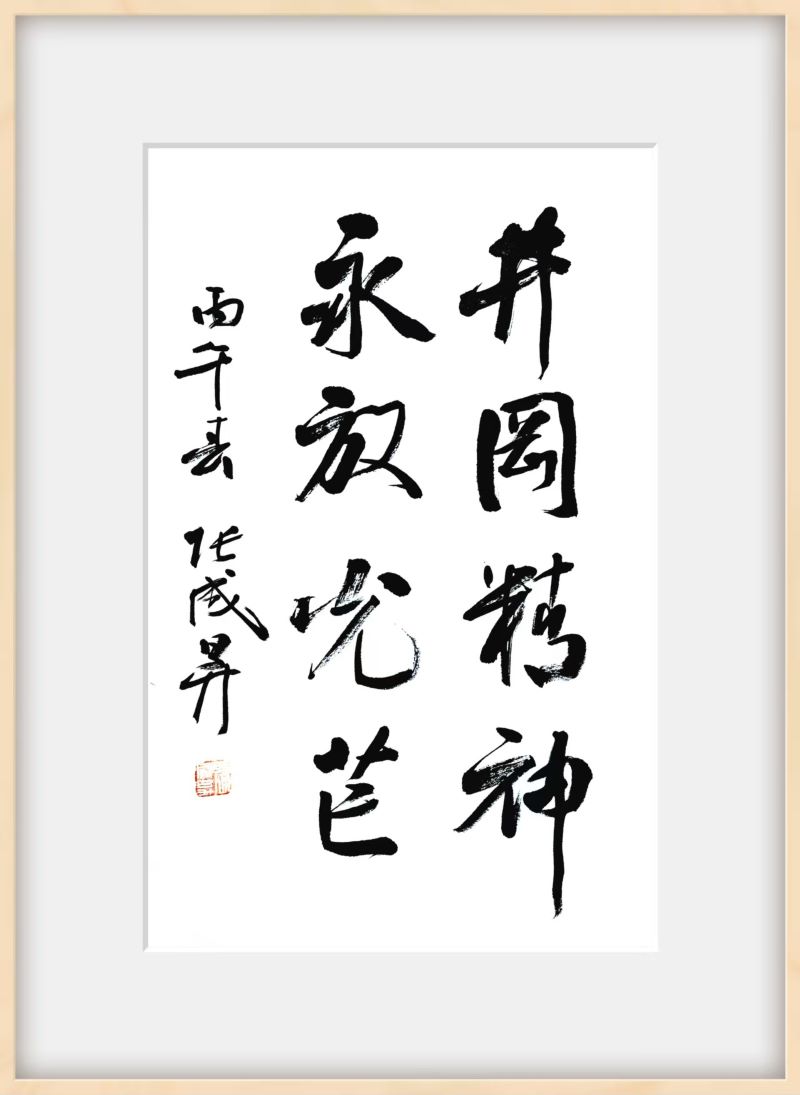 井冈精神
永放光芒
丙午春 张成昇